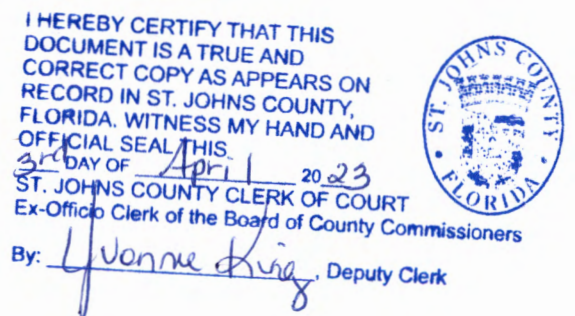 I HEREBY CERTIFY THAT THIS
DOCUMENT IS A TRUE AND
CORRECT COPY AS APPEARS ON
RECORD IN ST. JOHNS COUNTY,
FLORIDA. WITNESS MY HAND AND
OFFICIAL SEAL THIS
3rd DAY OF April 2023
ST. JOHNS COUNTY CLERK OF COURT
Ex-Officio Clerk of the Board of County Commissioners
By: Yvonne King, Deputy Clerk
ST. JOHNS COUNTY
FLORIDA